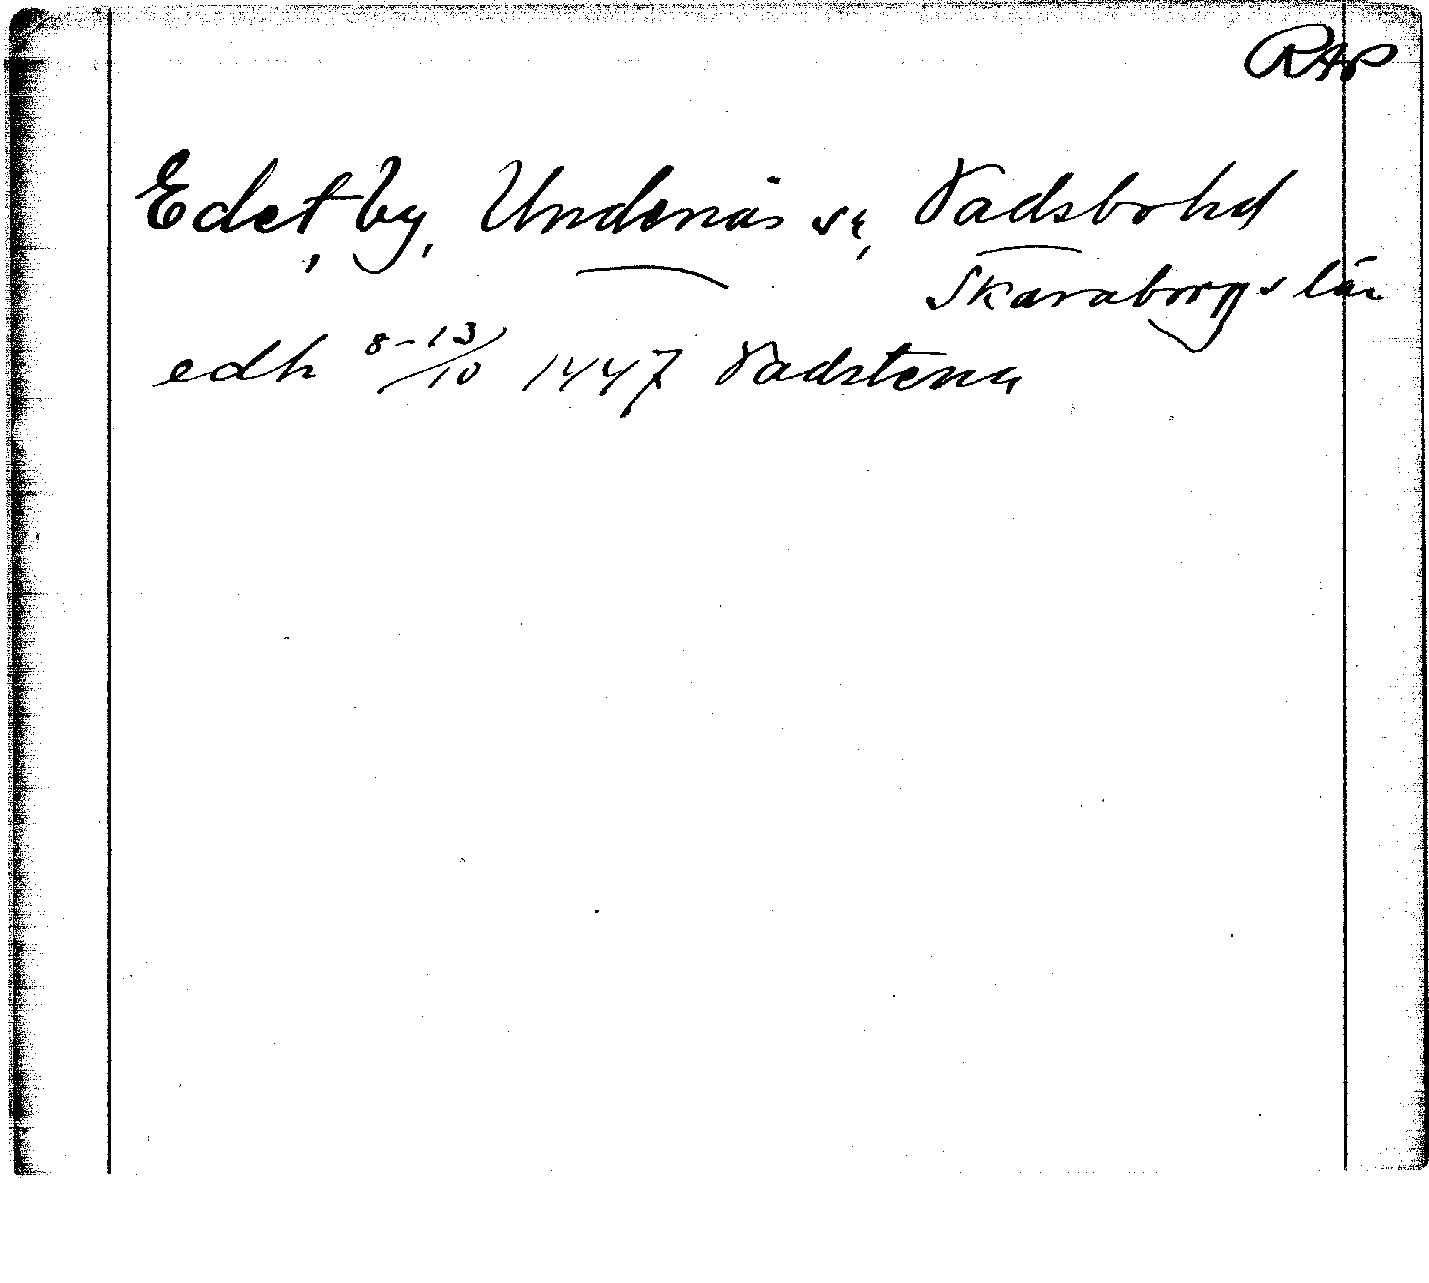 RAP
Edet, by, Undenäs sn, Vadsbo hd
Skaraborgs län
edh 8-13/10 1447 Vadstena